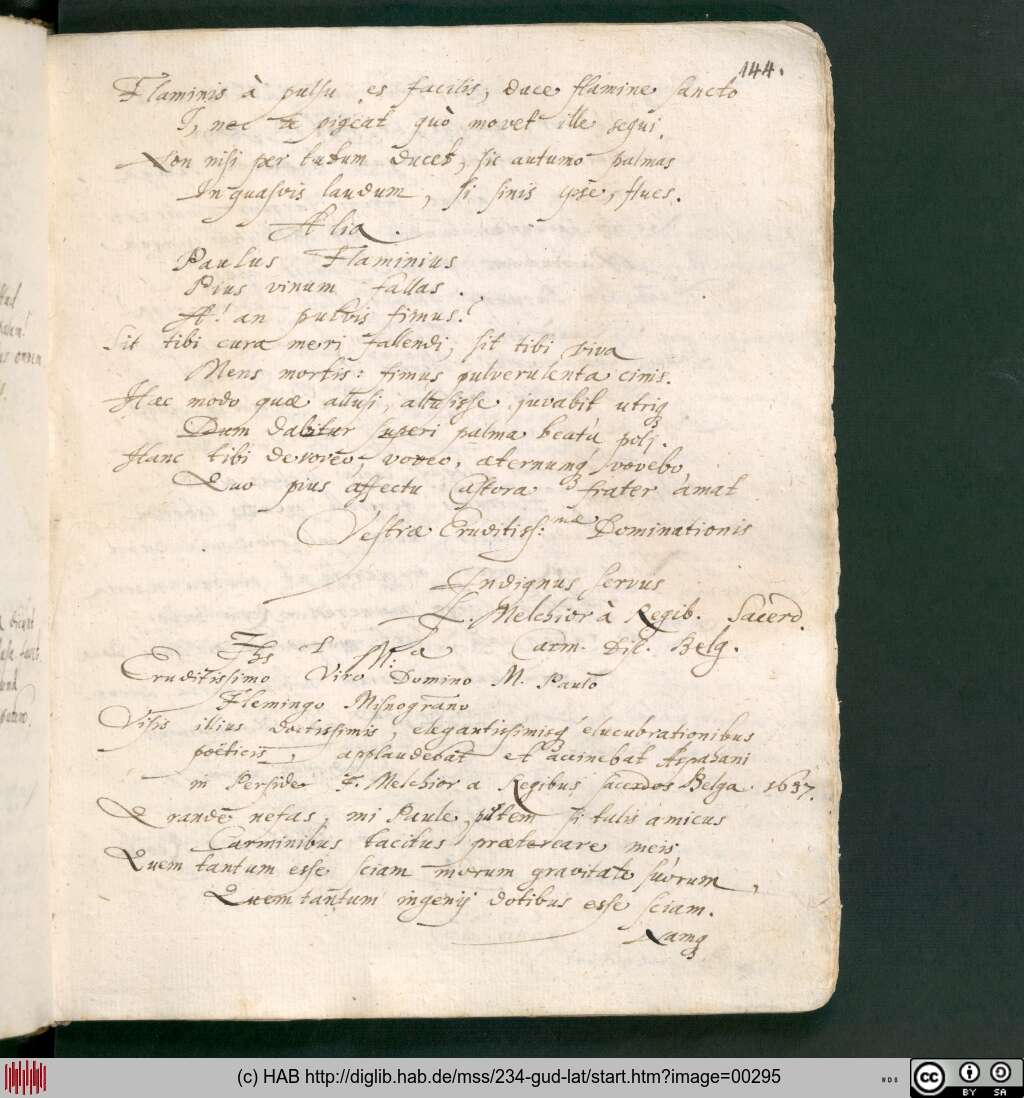 144.
Flaminis à pulsu es facilis, duce flamine sancto
I, nec te pigeat quò movet ille sequi.
Non nisi per tutum ducet, sic autumo palmas
In quasvis laudum, si sinis ipse, flues.
Alia.
Paulus Flaminius
Pius vinum fallas.
A! an pulvis fimus?
Sit tibi cura meri fallendi, sit tibi viva
Mens mortis: fimus pulverulenta cinis.
Hæc modo quæ allusi, allusisse juvabit utrīq
Dum dabitur superi palma beata polj.
Hanc tibi devoveo, voveo, æternumq vovebo,
Quo pius affectu Castora frater amat
Vestræ Eruditiss:mæ Dominationis
Indignus servus
F. Melchior à Regib. Sacerd.
Carm. Disc. Belg.
Ihs et M:a
Eruditissimo Viro Domino M. Paulo
Flemingo Misnograno
Visis illius doctissimis, elegantissimisq elucubrationibus
poëticis, applaudebat et accinebat Aspahani
in Perside F. Melchior a Regibus sacerdos Belga 1637.
Grande nefas, mi Paule, putem si talis amicus
Carminibus tacitus prætereare meis
Quem tantum esse sciam morum gravitate suorum,
Quem tantum ingenij dotibus esse sciam.
Namq
(c) HAB http://diglib.hab.de/mss/234-gud-lat/start.htm?image=00295
cc BY SA